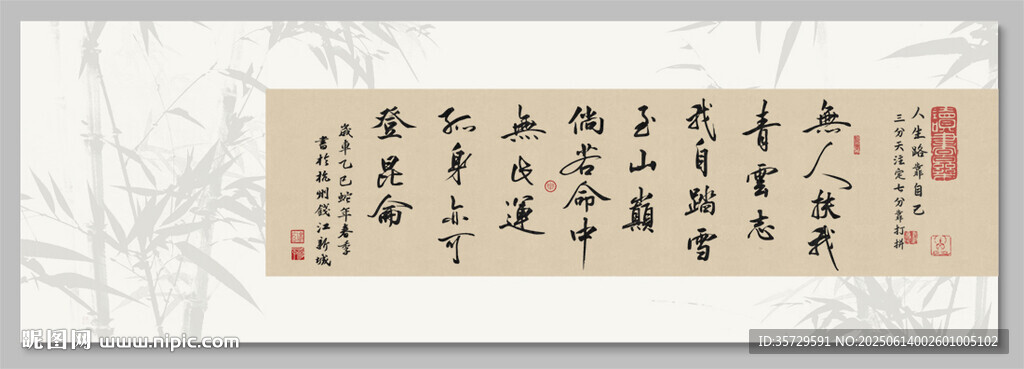 人生路靠自己
三分天注定七分靠打拼
無人扶我
青雲志
我自踏雪
至山巔
倘若命中
無此運
孤身亦可
登昆侖
歲在乙巳蛇年春季
書於杭州錢江新城
昵图网 www.nipic.com
ID:35729591 NO:20250614002601005102